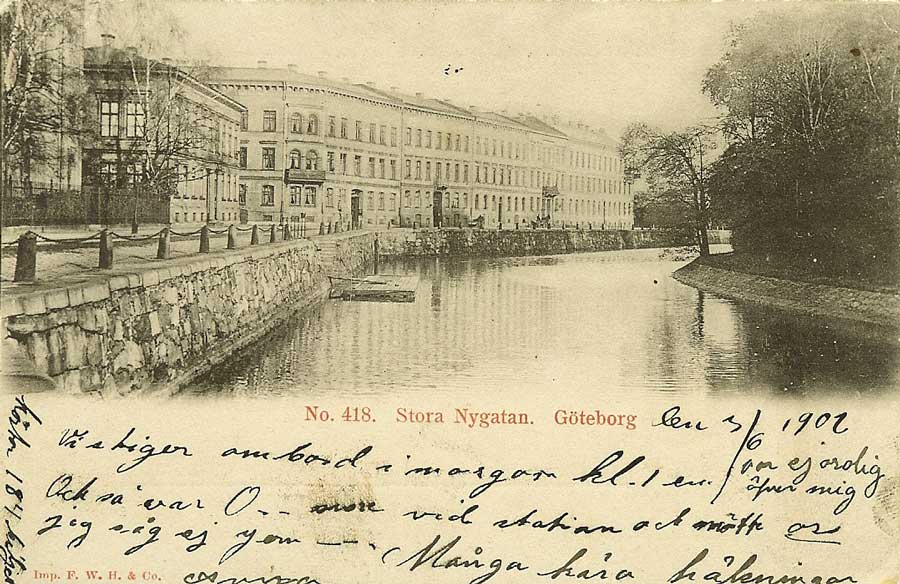 No. 418. Stora Nygatan. Göteborg den 3/6 1902
Vi stiger ombord i morgon kl. 1 em.
var ej orolig
öfver mig
Och så var O... vid station och mött os
jig såg ej
Många kära hälsningar
Imp. F. W. H. & Co.